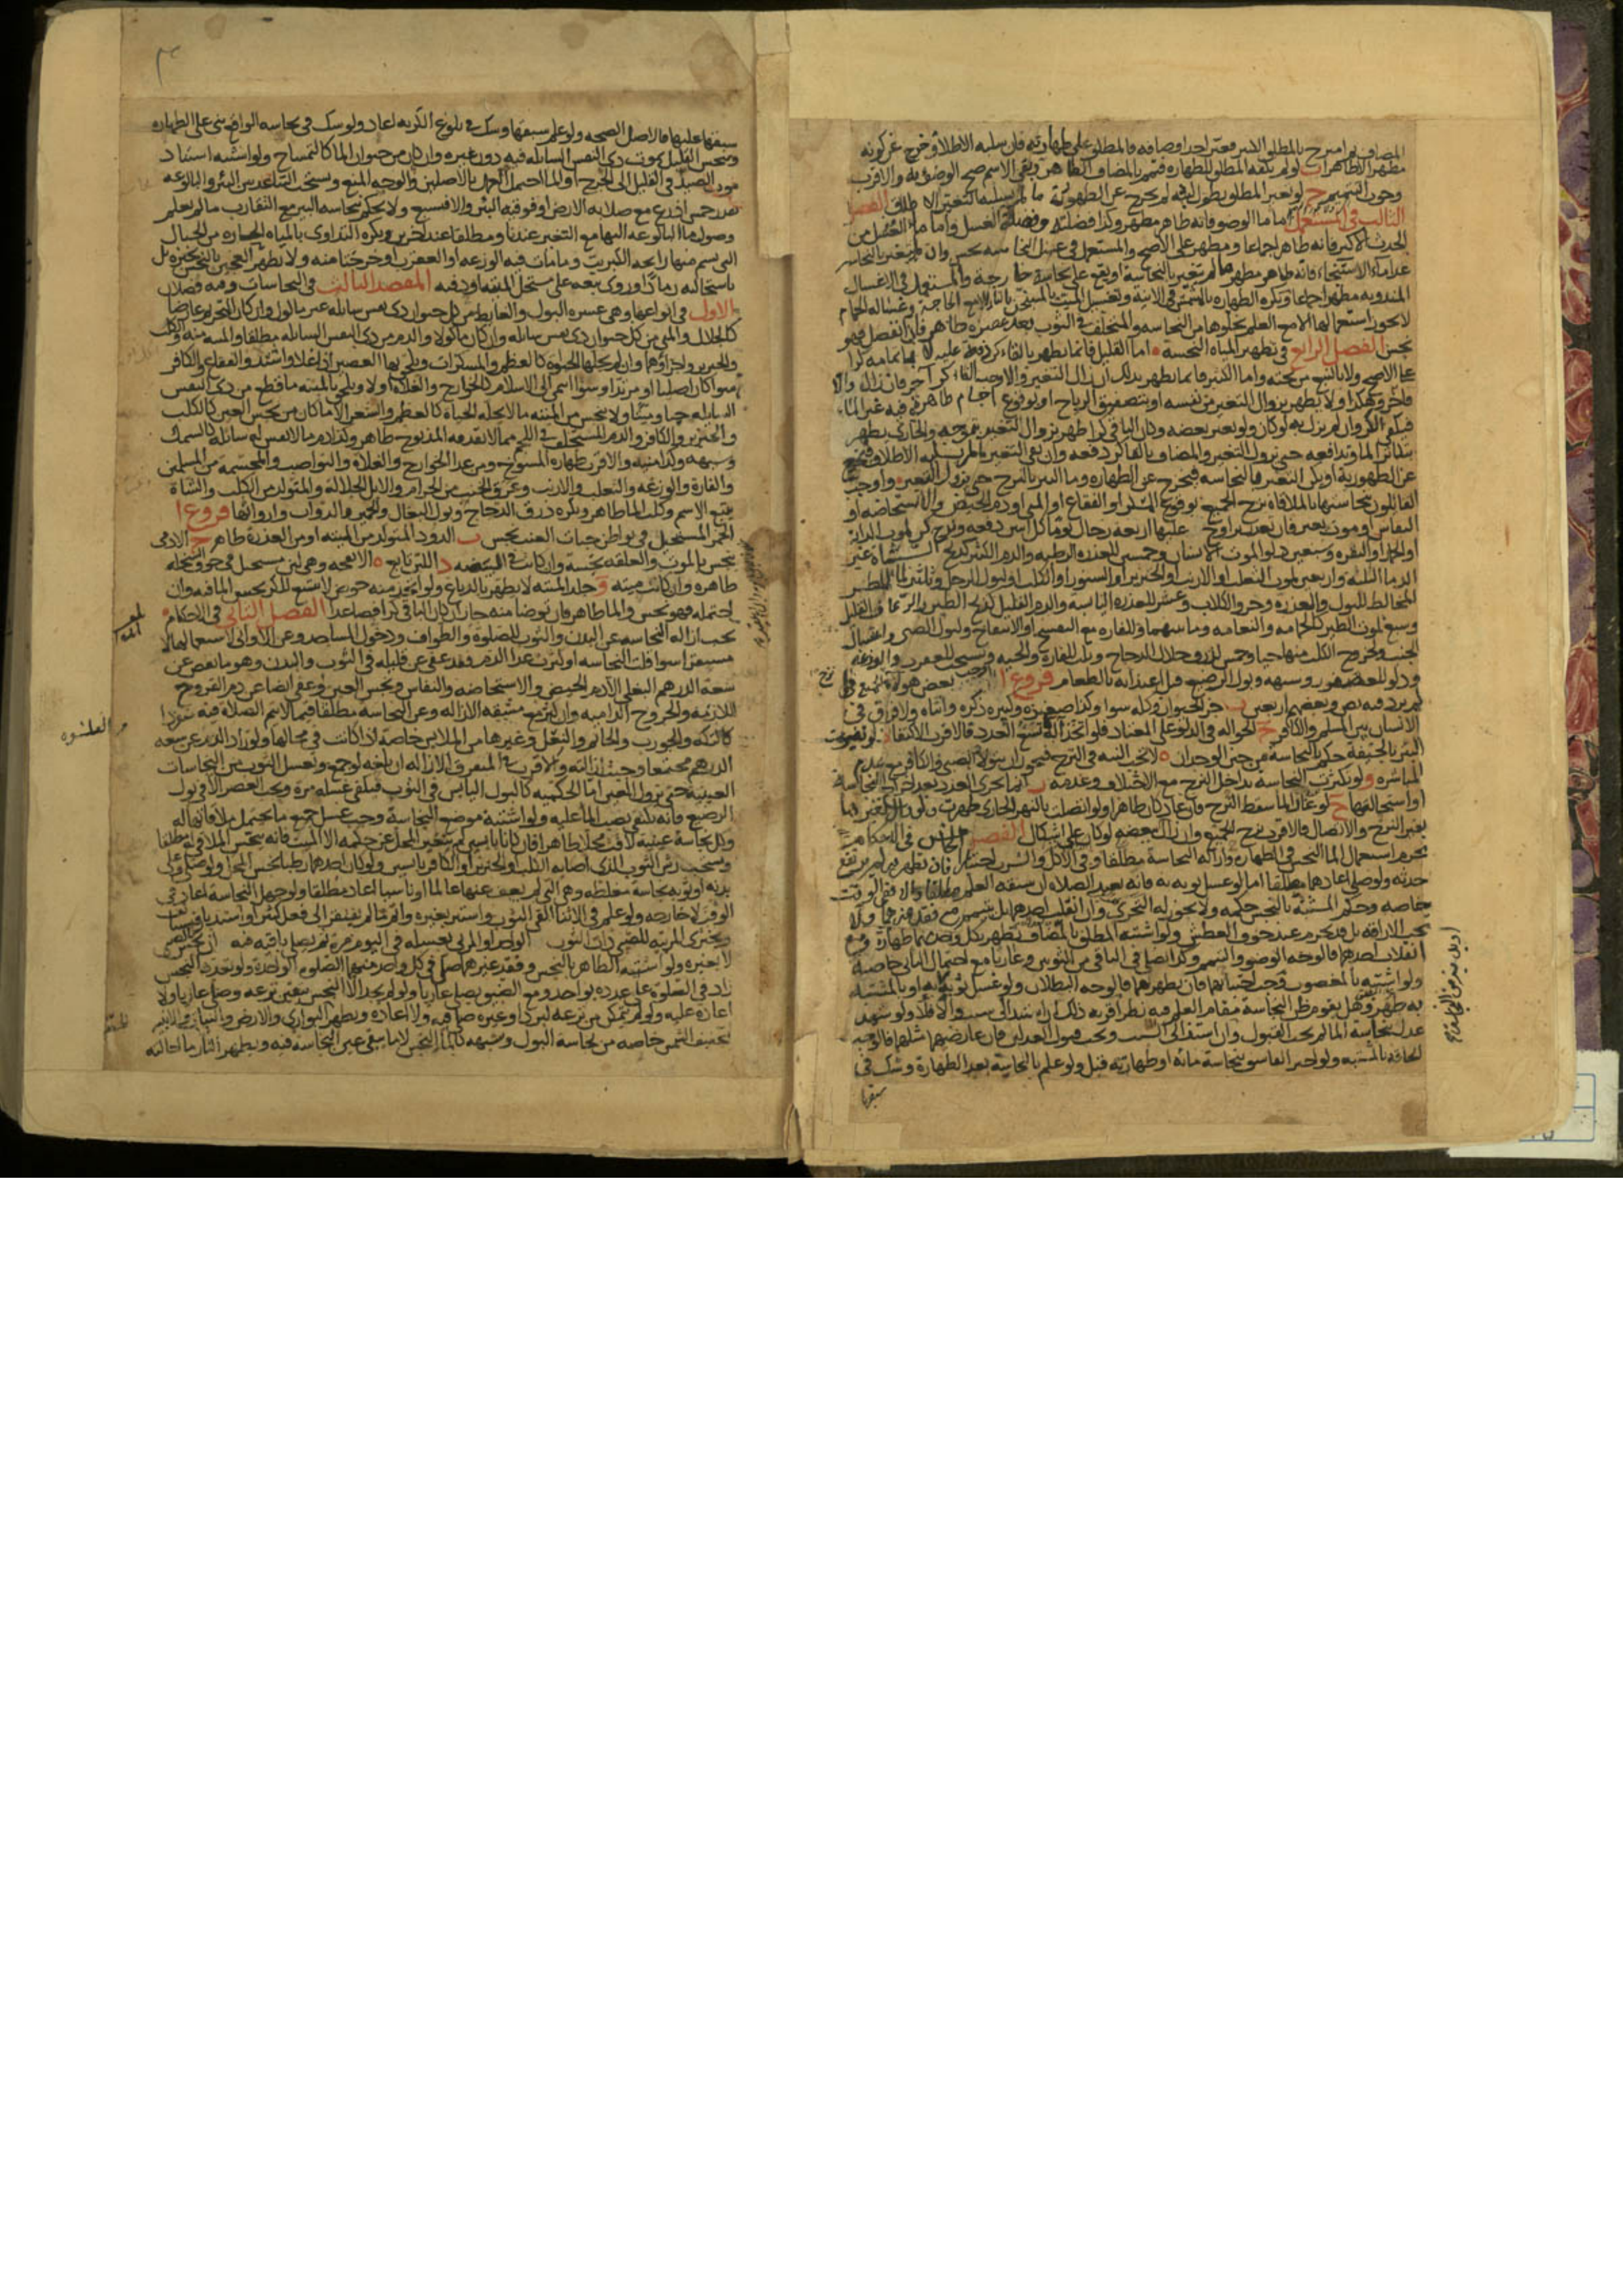 المضاف لو امتزج بالمطلق الكثير فغير احد اوصافه فالمطلق على طهارته فان سلبه الاطلاق خرج عن كونه
مطهرا لا طاهرا ب لو لم يكفه المطلق للطهارة فتمم بالمضاف الطاهر وبقي الاسم صح الوضوء به والاقرب
وجوب التيمم ج لو تغير المطلق بطول لبثه لم يخرج عن الطهورية ما لم يسلبه التغير الاطلاق الفصل
الثالث في المستعمل اما ماء الوضوء فانه طاهر مطهر وكذا فضلته وفضلة الغسل واما ماء الغسل من
الحدث الاكبر فانه طاهر اجماعا ومطهر على الاصح والمستعمل في غسل النجاسة نجس وان لم يتغير بالنجاسة
عدا ماء الاستنجاء فانه طاهر مطهر ما لم يتغير بالنجاسة او يقع على نجاسة خارجة والمستعمل في الاغسال
المندوبة مطهر اجماعا ويكره الطهارة بالمشمس في الانية وتغسيل الميت بالمسخن بالنار الا مع الحاجة وغسالة الحمام
لا يجوز استعمالها الا مع العلم بخلوها من النجاسة والمتخلف في الثوب بعد عصره طاهر فان انفصل فهو
نجس الفصل الرابع في تطهير المياه النجسة اما القليل فانما يطهر بالقاء كر دفعة عليه لا باتمامه كرا
على الاصح ولا بالنبع من تحته واما الكثير فانما يطهر بذلك ان زال التغير والا وجب القاء كر اخر فان زال والا
فاخر وهكذا ولا يطهر بزوال التغير من نفسه او بتصفيق الرياح او بوقوع اجسام طاهرة فيه غير الماء
فيكفي الكر وان لم يزل به لو كان ولو تغير بعضه وكان الباقي كرا طهر بزوال التغير بتموجه والجاري يطهر
بتكاثر الماء وتدافعه حتى يزول التغير والمضاف بالقاء كر دفعة وان بقي التغير ما لم يسلبه الاطلاق فيخرج
عن الطهورية او يكن التغير بالنجاسة فيخرج عن الطهارة وماء البئر بالنزح حتى يزول التغير واوجب
القائلون بنجاستها بالملاقاة نزح الجميع بوقوع المسكر او الفقاع او المني او دم الحيض او الاستحاضة او
النفاس او موت بعير فان تعذر تراوح عليها اربعة رجال يوما كل اثنين دفعة ونزح كر لموت الدابة
او الحمار او البقرة وسبعين دلوا لموت الانسان وخمسين للعذرة الرطبة والدم الكثير كذبح الشاة غير
الدماء الثلثة واربعين لموت الثعلب او الارنب او الخنزير او السنور او الكلب او لبول الرجل وثلثين لماء المطر
المخالط للبول والعذرة وخرو الكلاب وعشر للعذرة اليابسة والدم القليل كذبح الطير والرعاف القليل
وسبع لموت الطير كالحمامة والنعامة وما بينهما وللفارة مع التفسخ او الانتفاخ ولبول الصبي واغتسال
الجنب ولخروج الكلب منها حيا وخمس لذرق جلال الدجاج وثلث للفارة والحية ويستحب للعقرب والوزغة
ودلو للعصفور وشبهه وبول الرضيع قبل اغتذائه بالطعام فروع ا اوجب بعض هؤلاء نزح الجميع فيما
لم يرد فيه نص وبعضهم اربعين ب جزء الحيوان وكله سواء وكذا صغيره وكبيره ذكره وانثاه ولا فرق في
الانسان بين المسلم والكافر ج الحوالة في الدلو على المعتاد فلو اتخذ الة تسع العدد فالاقرب الاكتفاء د لو تغيرت
البئر بالجيفة حكم بالنجاسة من حين الوجدان ه لا يجب النية في النزح فيجوز ان يتولاه الصبي والكافر مع عدم
المباشرة و لو تكثرت النجاسة تداخل النزح مع الاختلاف وعدمه ز انما يجزي العدد بعد اخراج النجاسة
او استحالتها ح لو غار الماء سقط النزح فان عاد كان طاهرا ولو اتصلت بالنهر الجاري طهرت ولو زال تغيرها
بغير النزح والاتصال فالاقرب نزح الجميع وان زال ببعضه لو كان على اشكال الفصل الخامس في الاحكام
يحرم استعمال الماء النجس في الطهارة وازالة النجاسة مطلقا وفي الاكل والشرب اختيارا فان تطهر به لم يرتفع
حدثه ولو صلى اعادهما مطلقا اما لو غسل ثوبه به فانه يعيد الصلاة ان سبقه العلم مطلقا والا ففي الوقت
خاصة وحكم المشتبه بالنجس حكمه ولا يجوز له التحري وان انقلب احدهما بل يتيمم مع فقد غيرهما ولا
تجب الاراقة بل قد يحرم عند خوف العطش ولو اشتبه المطلق بالمضاف تطهر بكل واحد منهما طهارة ومع
انقلاب احدهما فالوجه الوضوء والتيمم وكذا يصلي في الباقي من الثوبين وعاريا مع احتمال الثاني خاصة
ولو اشتبه بالمغصوب وجب اجتنابهما فان تطهر بهما فالوجه البطلان ولو غسل ثوبه او بالمشتبه
به طهر وهل يقوم ظن النجاسة مقام العلم فيه نظر اقربه ذلك ان استند الى سبب والا فلا ولو شهد
عدل بنجاسة الماء لم يجب القبول وان استند الى السبب ويجب قبول العدلين فان عارضهما مثلهما فالوجه
الحاقه بالمشتبه ولو اخبر الفاسق بنجاسة مائه او طهارته قبل ولو علم بالنجاسة بعد الطهارة وشك في
سبقها
سبقها عليها فالاصل الصحة ولو علم سبقها وشك في بلوغ الكرية اعاد ولو شك في نجاسة الواقع بنى على الطهارة
وينجس القليل بموت ذي النفس السائلة فيه دون غيره وان كان من حيوان الماء كالتمساح ولو اشتبه استناد
موت الصيد في القليل الى الجرح او الماء احتمل العمل بالاصلين والوجه المنع ويستحب التباعد بين البئر والبالوعة
بقدر خمس اذرع مع صلابة الارض او فوقية البئر والا فسبع ولا يحكم بنجاسة البئر مع التقارب ما لم يعلم
وصول ماء البالوعة اليها مع التغير عندنا ومطلقا عند اخرين ويكره التداوي بالمياه الحارة من الجبال
التي يشم منها رايحة الكبريت وما مات فيه الوزغة او العقرب او خرجتا منه ولا يطهر العجين بالنجس بخبزه بل
باستحالته رمادا وروي بيعه على مستحل الميتة او دفنه المقصد الثالث في النجاسات وفيه فصلان
الاول في انواعها وهي عشرة البول والغائط من كل حيوان ذي نفس سائلة غير ماكول وان كان التحريم عارضا
كالجلال والمني من كل حيوان ذي نفس سائلة وان كان ماكولا والدم من ذي النفس السائلة مطلقا والميتة منه والكلب
والخنزير واجزاؤهما وان لم تحلها الحيوة كالعظم والمسكرات ويلحق بها العصير اذا غلا واشتد والفقاع والكافر
سواء كان اصليا او مرتدا وسواء انتمى الى الاسلام كالخوارج والغلاة او لا ويلحق بالميتة ما قطع من ذي النفس
السائلة حيا وميتا ولا ينجس من الميتة ما لا تحله الحياة كالعظم والشعر الا ما كان من نجس العين كالكلب
والخنزير والكافر والدم المتخلف في اللحم مما لا يقذفه المذبوح طاهر وكذا دم ما لا نفس له سائلة كالسمك
وشبهه وكذا منيه والاقرب طهارة المسوخ ومن عدا الخوارج والغلاة والنواصب والمجسمة من المسلمين
والفارة والوزغة والثعلب والارنب وعرق الجنب من الحرام والابل الجلالة والمتولد من الكلب والشاة
يتبع الاسم وكلب الماء طاهر ويكره ذرق الدجاج وبول البغال والحمير والدواب وارواثها فروع ا
الخمر المستحيل في بواطن حبات العنب نجس ب الدود المتولد من الميتة او من العذرة طاهر ج الادمي
ينجس بالموت والعلقة نجسة وان كانت في البيضة د اللبن تابع ه الانفحة وهي لبن مستحيل في جوف السخلة
طاهرة وان كانت ميتة و جلد الميتة لا يطهر بالدباغ ولو اتخذ منه حوض لا يتسع للكر نجس الماء فيه وان
احتمله فهو نجس والماء طاهر فان توضا منه جاز ان كان الباقي كرا فصاعدا الفصل الثاني في الاحكام
يجب ازالة النجاسة عن البدن والثوب للصلوة والطواف ودخول المساجد وعن الاواني لاستعمالها لا
مستقرا سواء قلت النجاسة او كثرت عدا الدم فقد عفي عن قليله في الثوب والبدن وهو ما نقص عن
سعة الدرهم البغلي الا دم الحيض والاستحاضة والنفاس ونجس العين وعفي ايضا عن دم القروح
اللازمة والجروح الدامية وان كثر مع مشقة الازالة وعن النجاسة مطلقا فيما لا يتم الصلاة فيه منفردا
كالتكة والجورب والخاتم والنعل وغيرها من الملابس خاصة اذا كانت في محالها ولو زاد الدم عن سعة
الدرهم مجتمعا وجبت ازالته والاقرب في المتفرق الازالة ان بلغه لو جمع ويغسل الثوب من النجاسات
العينية حتى يزول العين اما الحكمية كالبول اليابس في الثوب فيكفي غسله مرة ويجب العصر الا في بول
الرضيع فانه يكتفى بصب الماء عليه ولو اشتبه موضع النجاسة وجب غسل جميع ما يحتمل ملاقاتها له
وكل نجاسة عينية لاقت محلا طاهرا فان كانا يابسين لم يتغير المحل عن حكمه الا الميت فانه ينجس الملاقي له مطلقا
ويستحب رش الثوب الذي اصابه الكلب او الخنزير او الكافر يابسين ولو كان احدهما رطبا نجس المحل ولو صلى وعلى
بدنه او ثوبه نجاسة مغلظة وهي التي لم يعف عنها عالما او ناسيا اعاد مطلقا ولو جهل النجاسة اعاد في
الوقت لا خارجه ولو علم في الاثناء القى الثوب واستتر بغيره واتم ما لم يفتقر الى فعل كثير او استدبار فيستانف
ويجتزي المربية للصبي ذات الثوب الواحد او المربي بغسله في اليوم مرة ثم يصلي باقيه فيه ان نجس بالصبي
لا بغيره ولو اشتبه الطاهر بالنجس وفقد غيرهما صلى في كل واحد منهما الصلوة الواحدة ولو تعدد النجس
زاد في الصلوة على عدده بواحد ومع الضيق يصلي عاريا ولو لم يجد الا النجس بيقين نزعه وصلى عاريا ولا
اعادة عليه ولو لم يتمكن من نزعه لبرد او غيره صلى فيه ولا اعادة وتطهر البواري والارض والنبات والابنية
بتجفيف الشمس خاصة من نجاسة البول وشبهه كالماء النجس لا ما يبقى عين النجاسة فيه ويطهر النار ما احالته
القلنسوة